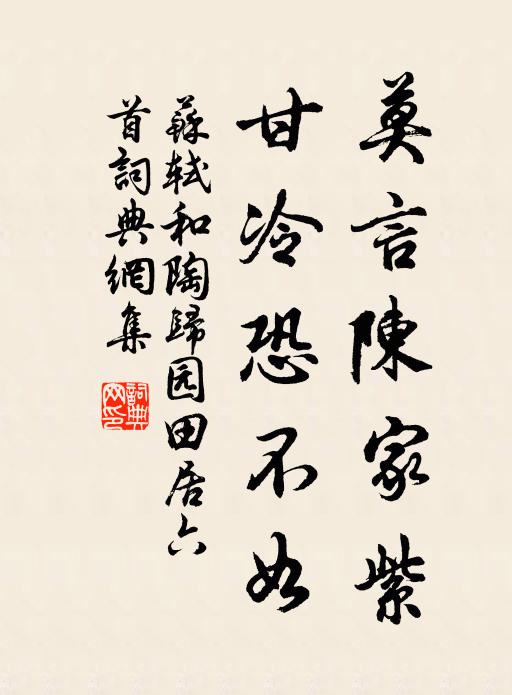 莫言陳家紫
甘冷恐不如
蘇軾和陶歸园田居六
首詞典網集
詞典
网印